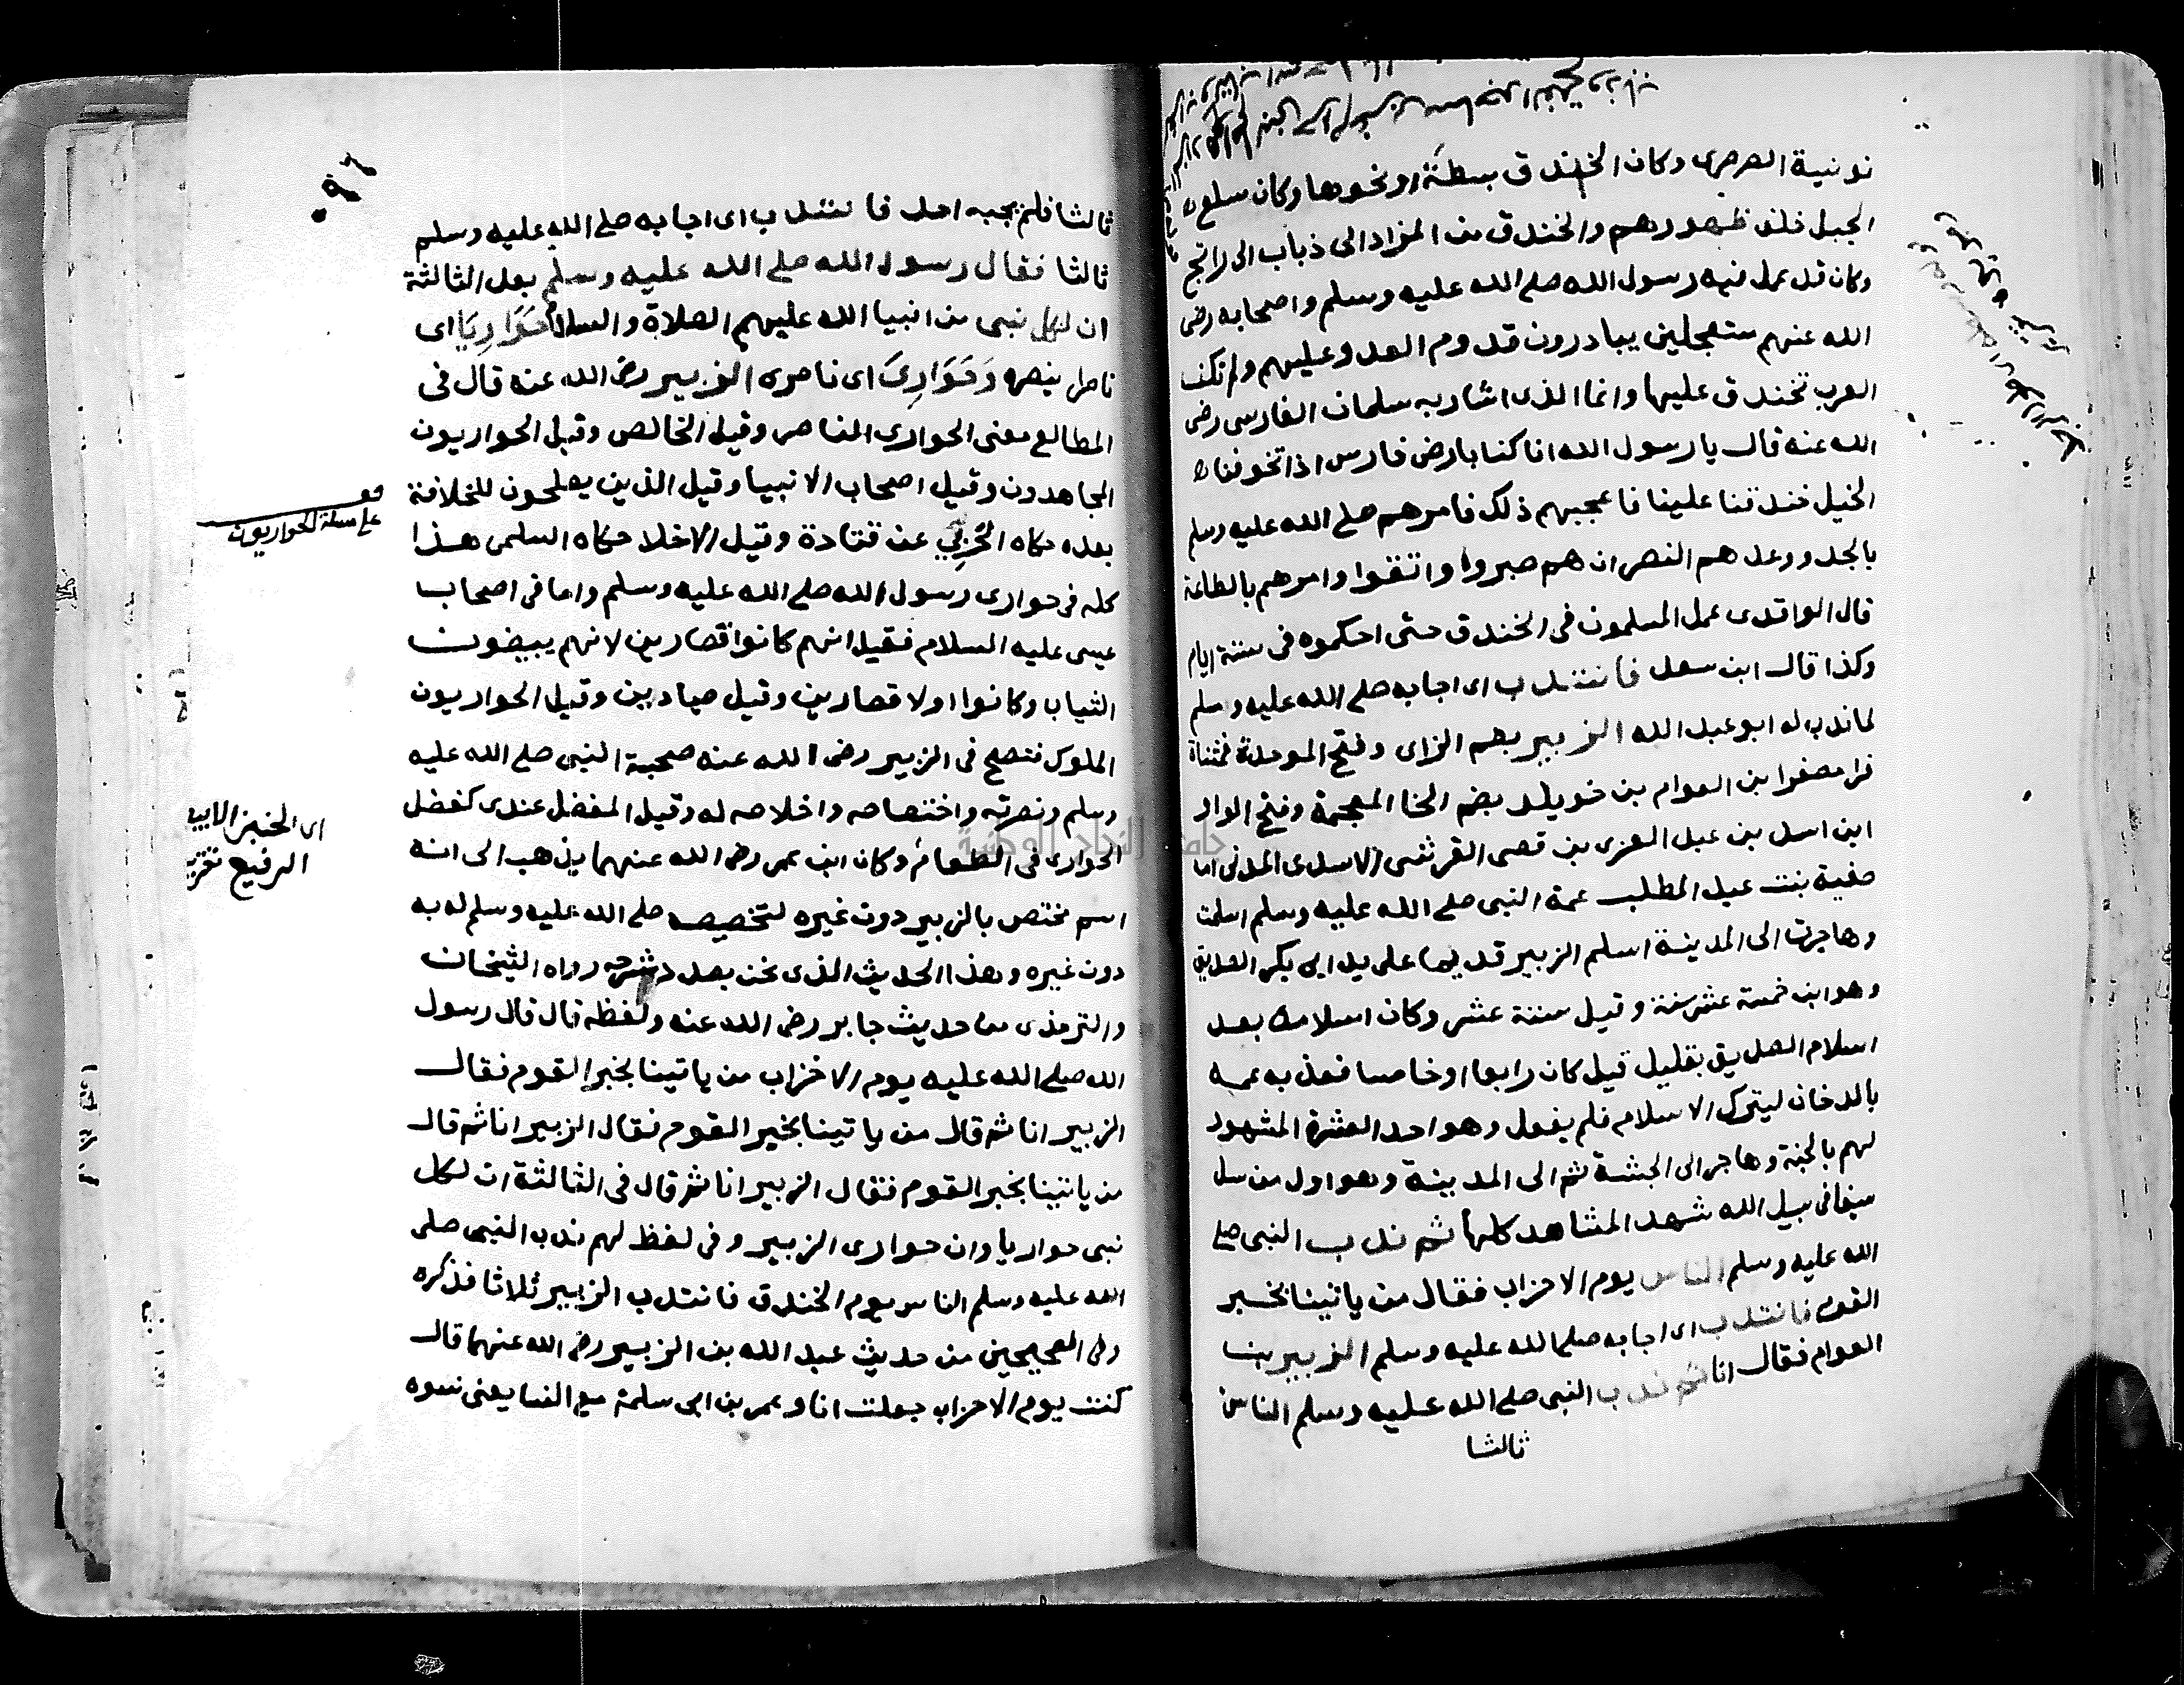 نونية الصرصرى وكان الخندق بسطة او نحوها وكان سلع
الجبل خلف ظهورهم والخندق من المزاد الى ذباب الى راتج
وكان قد عمل فيه رسول الله صلى الله عليه وسلم واصحابه رضى
الله عنهم مستعجلين يبادرون قدوم العدو عليهم ولم تكن
العرب تخندق عليها وانما الذى اشار به سلمان الفارسى رضى
الله عنه قال يا رسول الله انا كنا بارض فارس اذا تخوفنا
الخيل خندقنا علينا فاعجبهم ذلك فامرهم صلى الله عليه وسلم
بالجد ووعدهم النصر ان هم صبروا واتقوا وامرهم بالطاعة
قال الواقدى عمل المسلمون فى الخندق حتى احكموه فى ستة ايام
وكذا قال ابن سعد فانتدب اى اجابه صلى الله عليه وسلم
لما ندب له ابو عبد الله الزبير بضم الزاى وفتح الموحدة فمثناة
فرا مصغرا بن العوام بن خويلد بضم الخا المعجمة وفتح الواو
ابن اسد بن عبد العزى بن قصى القرشى الاسدى المدنى اما
صفية بنت عبد المطلب عمة النبى صلى الله عليه وسلم اسلمت
وهاجرت الى المدينة اسلم الزبير قديما على يد ابى بكر الصديق
وهو ابن خمسة عشر سنة وقيل ستة عشر وكان اسلامه بعد
اسلام الصديق بقليل قيل كان رابعا او خامسا فعذبه عمه
بالدخان ليترك الاسلام فلم يفعل وهو احد العشرة المشهود
لهم بالجنة وهاجر الى الحبشة ثم الى المدينة وهو اول من سل
سيفا فى سبيل الله شهد المشاهد كلها ثم ندب النبى صلى
الله عليه وسلم الناس يوم الاحزاب فقال من ياتينا بخبر
القوم فانتدب اى اجابه صلى الله عليه وسلم الزبير بن
العوام فقال انا ثم ندب النبى صلى الله عليه وسلم الناس
ثالثا
٠٩٦
ثالثا فلم يجبه احد فانتدب اى اجابه صلى الله عليه وسلم
ثالثا فقال رسول الله صلى الله عليه وسلم بعد الثالثة
ان لكل نبى من انبيا الله عليهم الصلاة والسلام حَوَارِيَا اى
ناصرا ينصره وَحَوَارِىَ اى ناصرى الزبير رضى الله عنه قال فى
المطالع معنى الحوارى الناصر وقيل الخالص وقيل الحواريون
المجاهدون وقيل اصحاب الانبيا وقيل الذين يصلحون للخلافة
بعده حكاه الحربي عن قتادة وقيل الاخلا حكاه السلمى هذا
كله فى حوارى رسول الله صلى الله عليه وسلم واما فى اصحاب
عيسى عليه السلام فقيل انهم كانوا قصارين لانهم يبيضون
الثياب وكانوا اولا قصارين وقيل صيادين وقيل الحواريون
الملوك فتصح فى الزبير رضى الله عنه صحبة النبى صلى الله عليه
وسلم ونصرته واختصاصه واخلاصه له وقيل المفضل عندى كفضل
الحوارى فى الطعام وكان ابن عمر رضى الله عنهما يذهب الى انه
اسم مختص بالزبير دون غيره لتخصيصه صلى الله عليه وسلم له به
دون غيره وهذا الحديث الذى نحن بصدد شرحه رواه الشيخان
والترمذى من حديث جابر رضى الله عنه ولفظه قال قال رسول
الله صلى الله عليه يوم الاحزاب من ياتينا بخبر القوم فقال
الزبير انا ثم قال من ياتينا بخبر القوم فقال الزبير انا ثم قال
من ياتينا بخبر القوم فقال الزبير انا ثم قال فى الثالثة ان لكل
نبى حواريا وان حوارى الزبير وفى لفظ لهم ندب النبى صلى
الله عليه وسلم الناس يوم الخندق فانتدب الزبير ثلاثا فذكره
وفى الصحيحين من حديث عبد الله بن الزبير رضى الله عنهما قال
كنت يوم الاحزاب جعلت انا وعمر بن ابى سلمة مع النسا يعنى نسوه
على مسلة الحواريون
اى الخبز الابيض
الرفيع
جامعة النجاح الوطنية